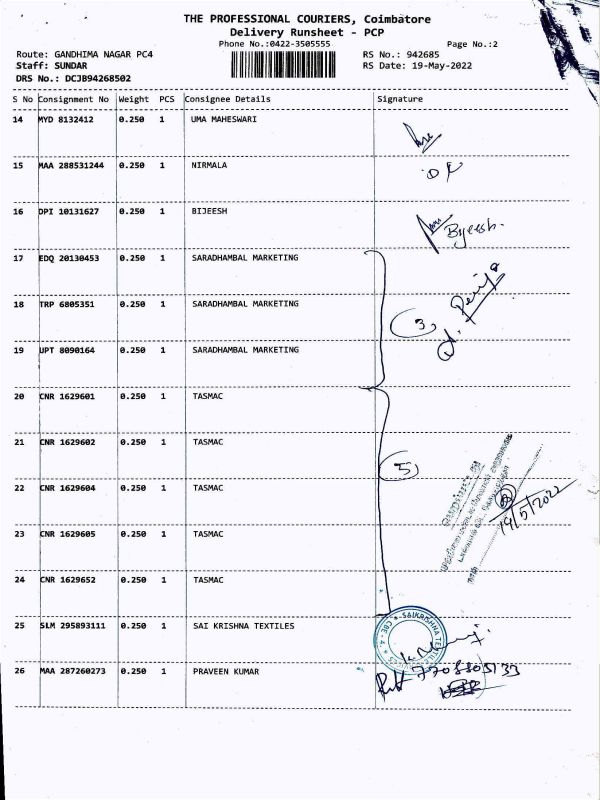 THE PROFESSIONAL COURIERS, Coimbatore
Delivery Runsheet - PCP
Phone No.:0422-3505555
Page No.:2
Route: GANDHIMA NAGAR PC4
RS No.: 942685
Staff: SUNDAR
RS Date: 19-May-2022
DRS No.: DCJB94268502
S No Consignment No Weight PCS Consignee Details Signature
14 MYD 8132412 0.250 1 UMA MAHESWARI
15 MAA 288531244 0.250 1 NIRMALA
16 DPI 10131627 0.250 1 BIJEESH
Bijeesh.
17 EDQ 20130453 0.250 1 SARADHAMBAL MARKETING
18 TRP 6805351 0.250 1 SARADHAMBAL MARKETING
3
19 UPT 8090164 0.250 1 SARADHAMBAL MARKETING
20 CNR 1629601 0.250 1 TASMAC
21 CNR 1629602 0.250 1 TASMAC
5
22 CNR 1629604 0.250 1 TASMAC
19/5/2022
23 CNR 1629605 0.250 1 TASMAC
24 CNR 1629652 0.250 1 TASMAC
25 SLM 295893111 0.250 1 SAI KRISHNA TEXTILES
SAIKRISHNA TEXTILE
CBE-4
26 MAA 287260273 0.250 1 PRAVEEN KUMAR